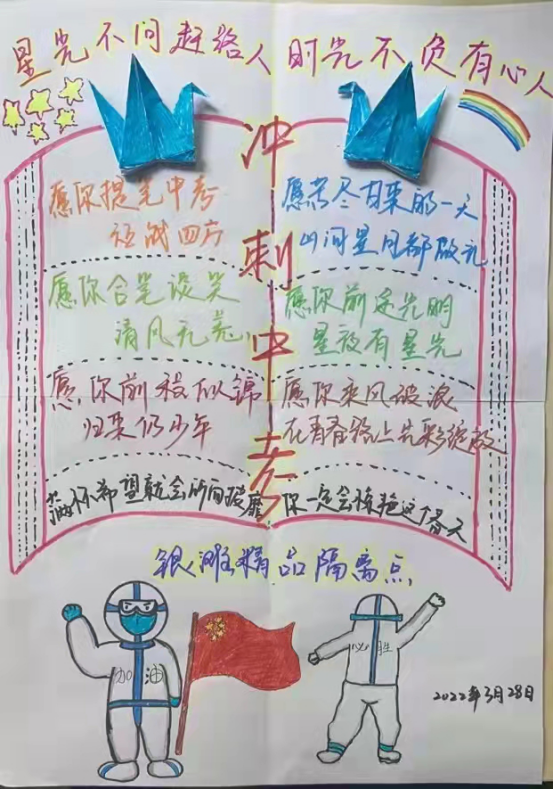 星光不问赶路人 时光不负有心人
冲刺中考
愿你提笔中考
征战四方
愿你合笔谈笑
清风无恙
愿你前程似锦
归来仍少年
满怀希望就会所向披靡
愿苦尽甘来的一天
山河星月都做礼
愿你前途光明
星夜有星光
愿你乘风破浪
在青春路上光彩绽放
你一定会惊艳这个春天
银滩精品隔离点
加油
必胜
2022年3月28日